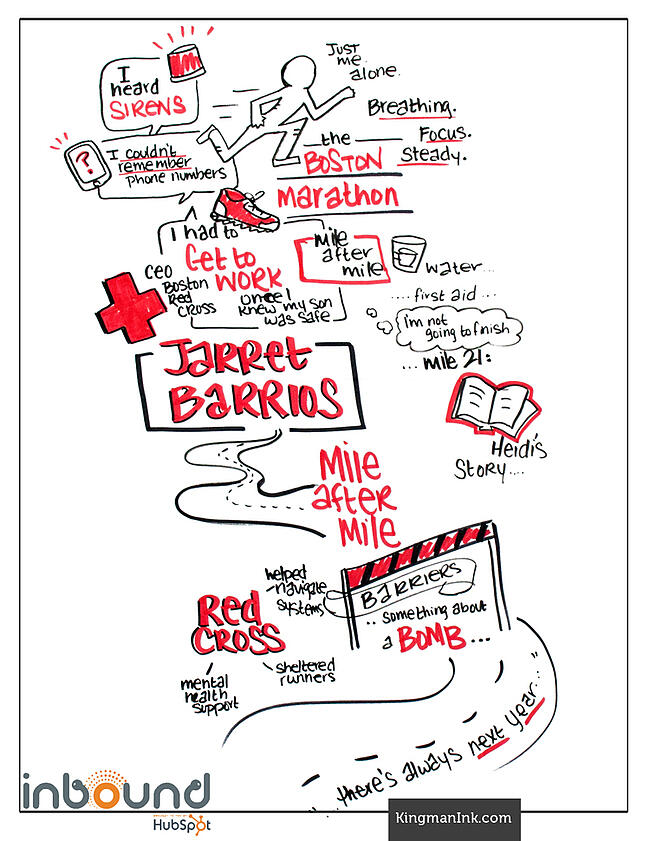 I
heard
SIRENS
Just
me.
alone.
Breathing.
Focus.
Steady.
?
I couldn't
remember
phone numbers
the
BOSTON
marathon
I had to
Get to
WORK
once I
knew my son
was safe
CEO
Boston
Red
CROSS
mile
after
mile
water...
....first aid...
i'm not
going to finish
...mile 21:
Heidi's
STORY....
JARRET
BARRIOS
Mile
after
Mile
helped
navigate
systems
Red
CROSS
mental
health
support
sheltered
runners
BARRIERS
..something about
a BOMB...
"...there's always next year..."
inbound
BROUGHT TO YOU BY
HubSpot
KingmanInk.com